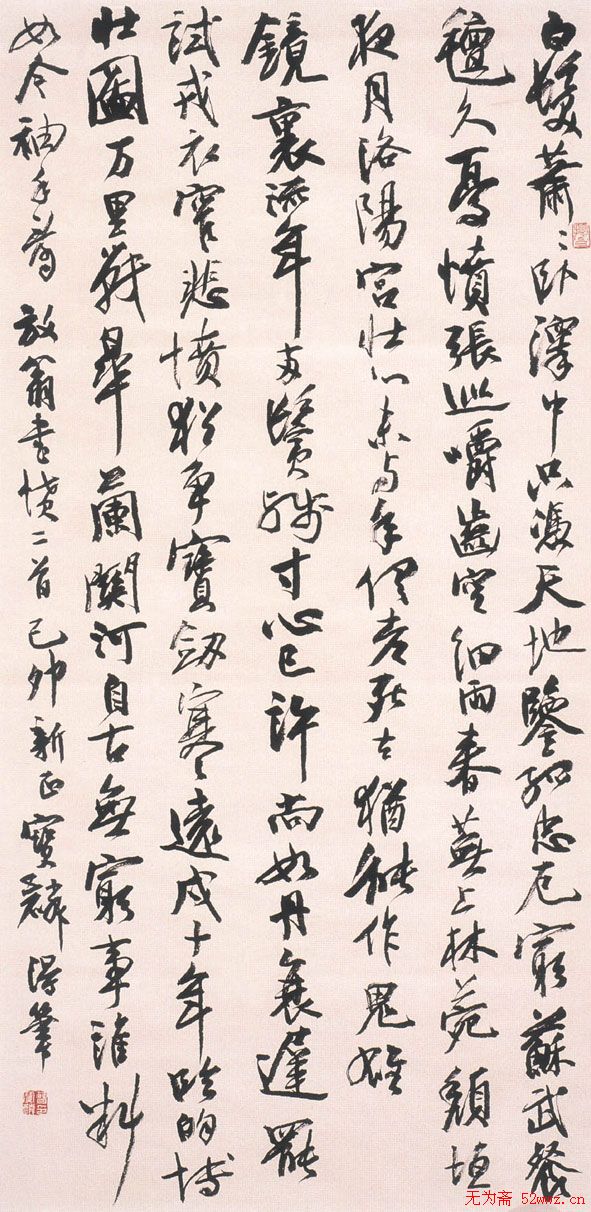 白髮蕭〻卧澤中只憑天地鑒孤忠厄窮蘇武餐
氈久憂憤張巡嚼齒空細雨春蕪上林苑頹垣
夜月洛陽宮壯心未與年俱老死去猶能作鬼雄
鏡裏流年兩鬢殘寸心已許尚如丹衰遲罷
試戎衣窄悲憤猶爭寶劍寒遠戍十年臨的博
壯圖万里戰皋蘭關河自古無窮事誰料
如今袖手看 放翁書憤二首己卯新正寶麟得筆
无为斋 52wwz.cn